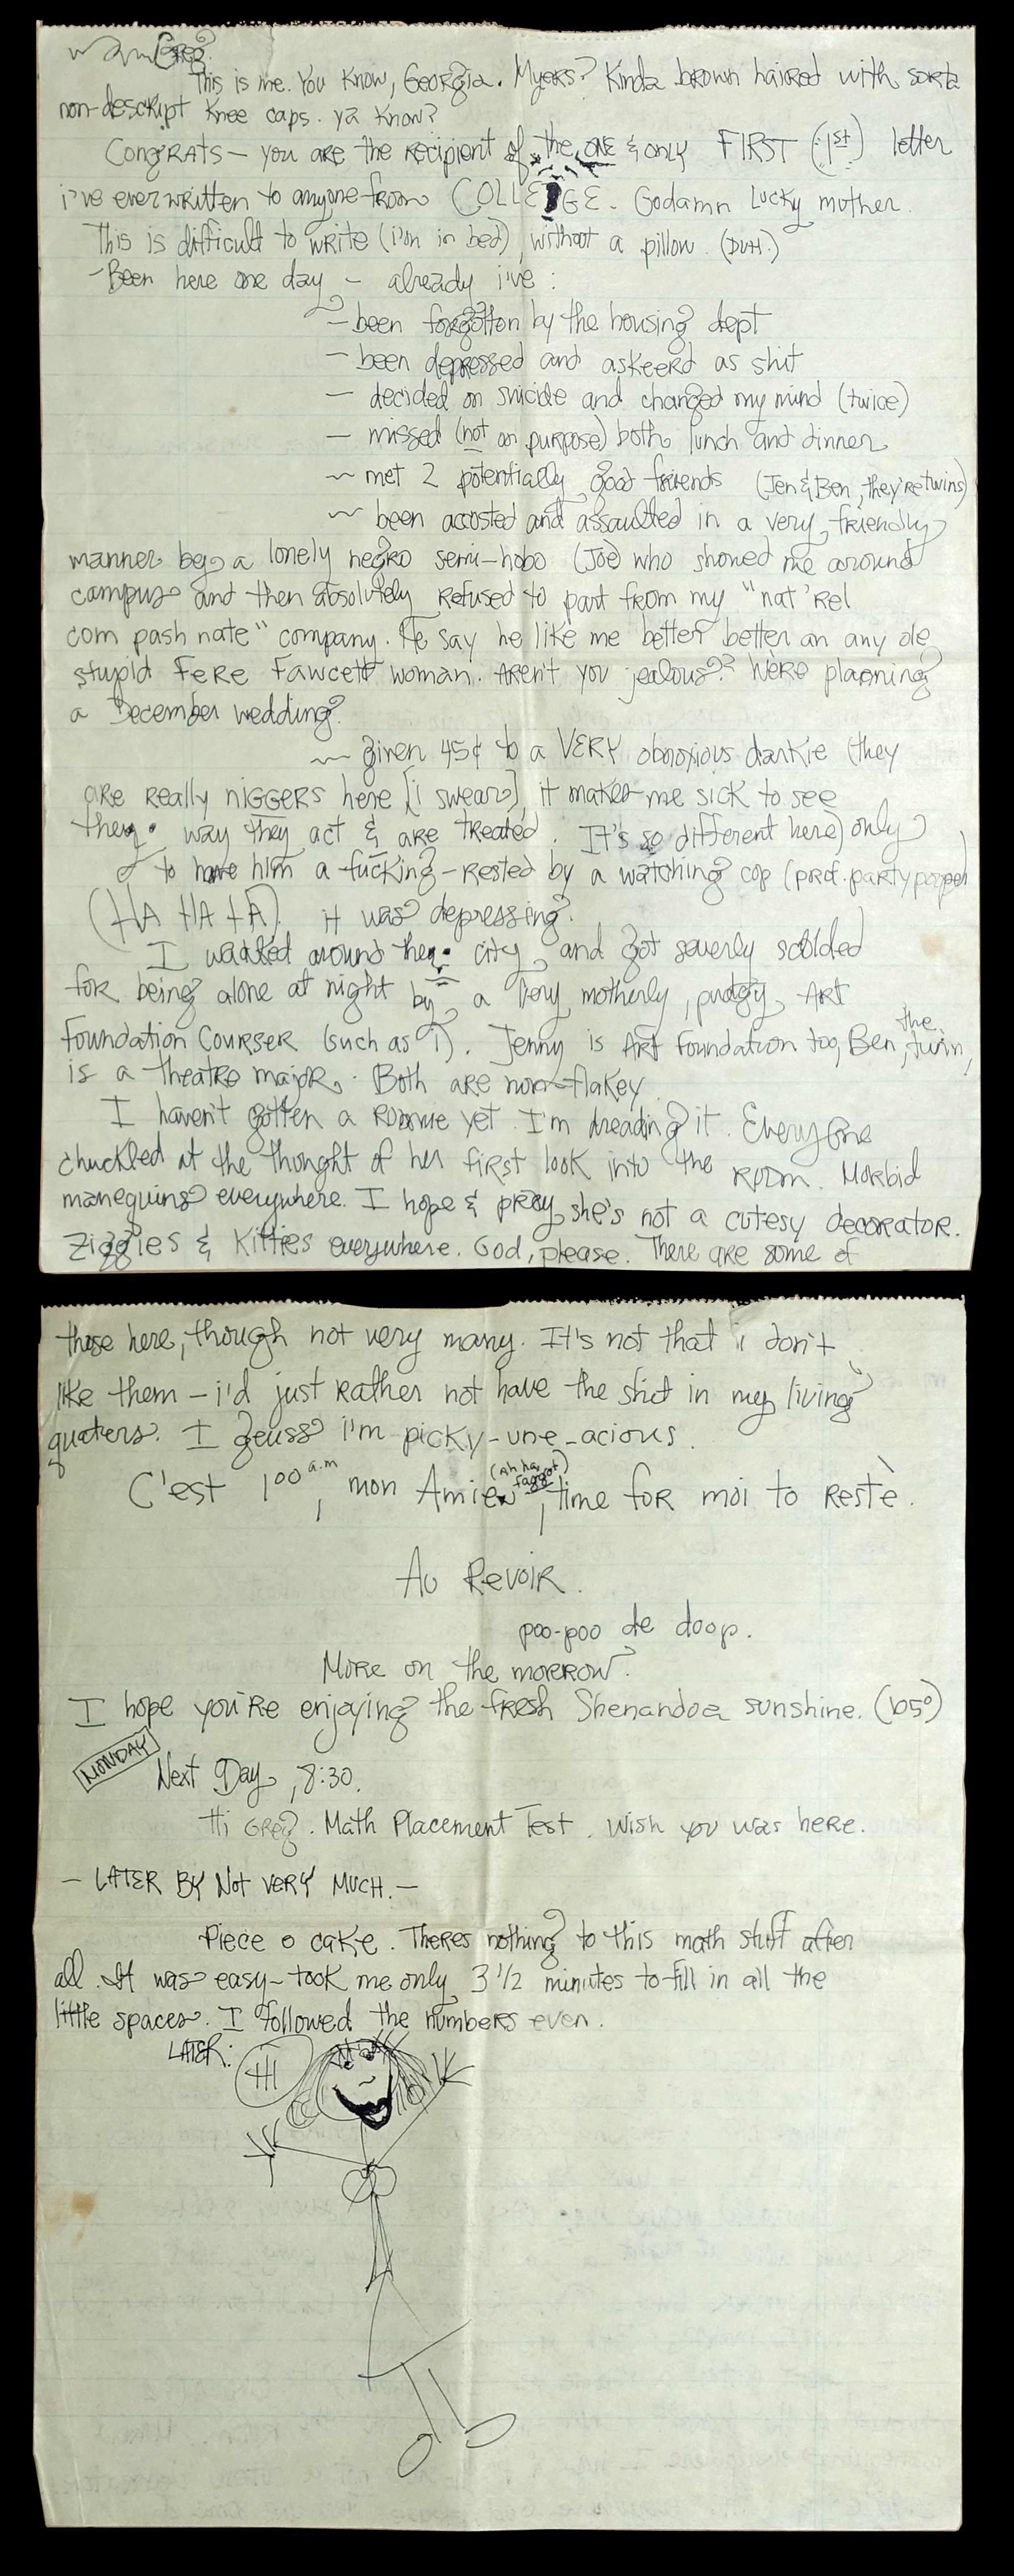 Greg?
This is me. You know, Georgia. Myers? Kinda brown haired with sorta
non-descript knee caps. ya know?
Congrats — you are the recipient of the ONE & only FIRST (1st) letter
i've ever written to anyone from COLLEGE. Godamn lucky mother.
This is difficult to write (i'm in bed) without a pillow. (DUH.)
- Been here one day — already i've:
- been forgotton by the housing dept
- been depressed and askeerd as shit
- decided on suicide and changed my mind (twice)
- missed (not on purpose) both lunch and dinner
~ met 2 potentially good friends (Jen & Ben, they're twins)
~ been accosted and assaulted in a very friendly
manner by a lonely negro semi-hobo (Joe) who showed me around
campus and then absolutely refused to part from my "nat'rel
com pash nate" company. He say he like me better better an any ole
stupid Fere Fawcett woman. Aren't you jealous?? We're planning
a December wedding.
~ given 45¢ to a VERY obnoxious darkie (they
are really niggers here [i swear], it makes me sick to see
the way they act & are treated. It's so different here) only
to have him a-fucking-rested by a watching cop (prof. party pooper)
(HA HA HA). it was depressing.
I walked around the city and got severly scolded
for being alone at night by a very motherly, pudgy Art
Foundation Courser (such as I). Jenny is Art Foundation too, Ben, the twin,
is a theatre major. Both are non-flakey.
I haven't gotten a roomie yet. I'm dreading it. Everyone
chuckled at the thought of her first look into the room. Morbid
manequins everywhere. I hope & pray she's not a cutesy decorator.
Ziggies & Kitties everywhere. God, please. There are some of
those here, though not very many. It's not that i don't
like them — i'd just rather not have the shit in my living
quaters. I geuss i'm picky-une-acious.
C'est 1:00 a.m, mon Amie (ah ha faggot), time for moi to restè.
Au Revoir.
poo-poo de doop.
More on the morrow.
I hope you're enjoying the fresh Shenandoa sunshine. (105°)
MONDAY
Next Day, 8:30.
Hi Greg. Math Placement Test. Wish you was here.
— LATER BY NOT VERY MUCH. —
Piece o cake. Theres nothing to this math stuff after
all. It was easy - took me only 3 1/2 minutes to fill in all the
little spaces. I followed the numbers even.
LATER:
HI